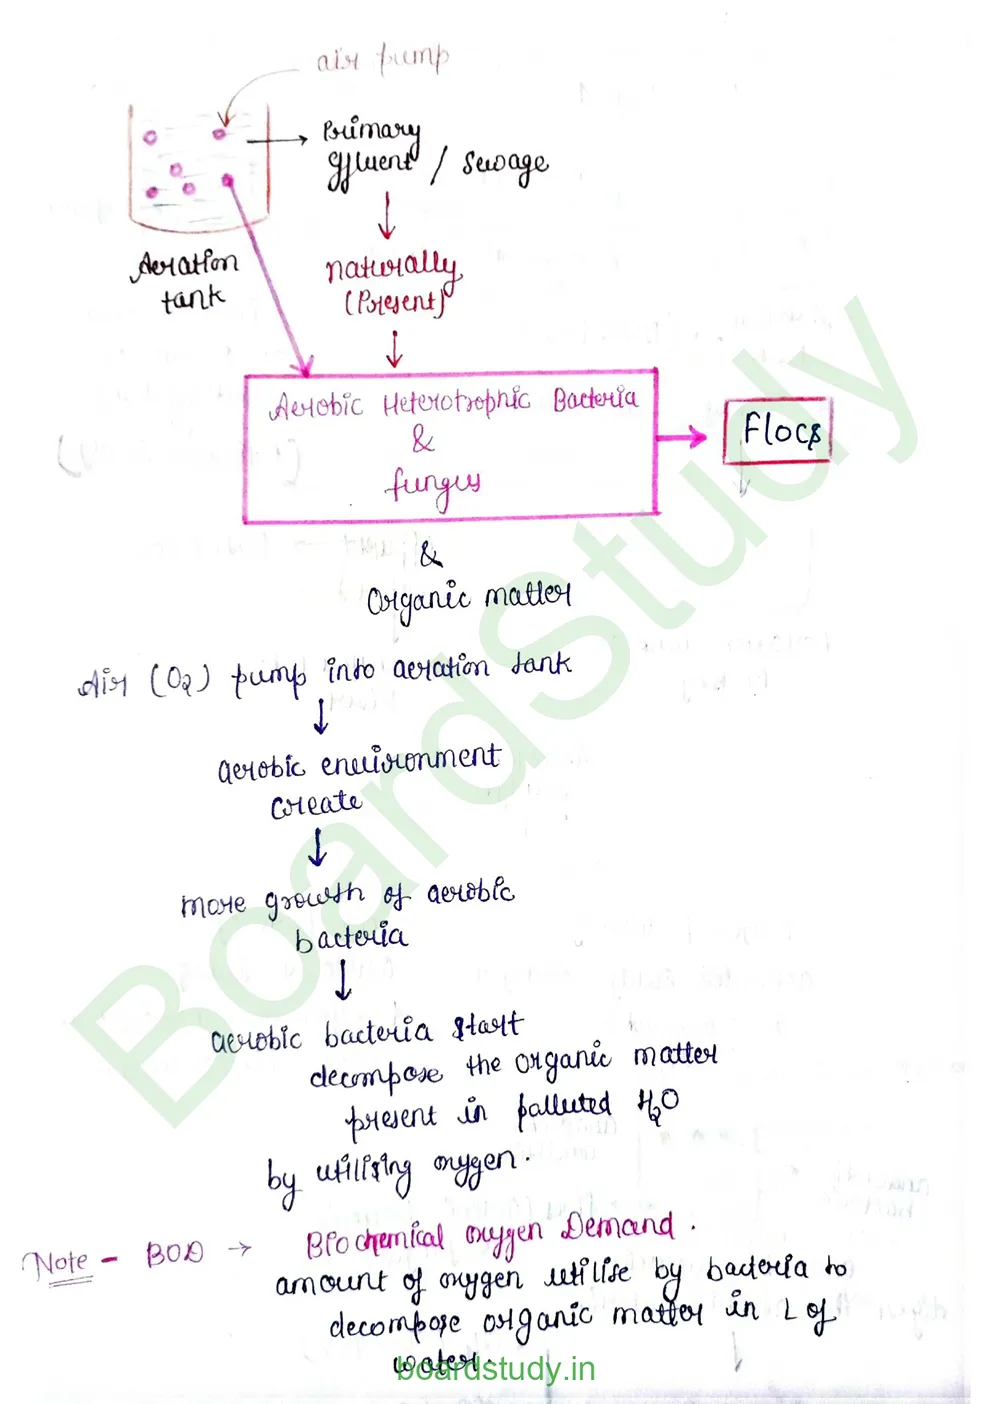 air pump
Primary
effluent / Sewage
Aeration
tank
naturally
(Present)
Aerobic Heterotrophic Bacteria
&
fungus
Flocs
&
Organic matter
Air (O2) pump into aeration tank
aerobic environment
create
more growth of aerobic
bacteria
aerobic bacteria start
decompose the organic matter
present in palluted H2O
by utilising oxygen.
Note - BOD → Biochemical oxygen Demand.
amount of oxygen utilise by bacteria to
decompose organic matter in L of
water.
BoardStudy
boardstudy.in